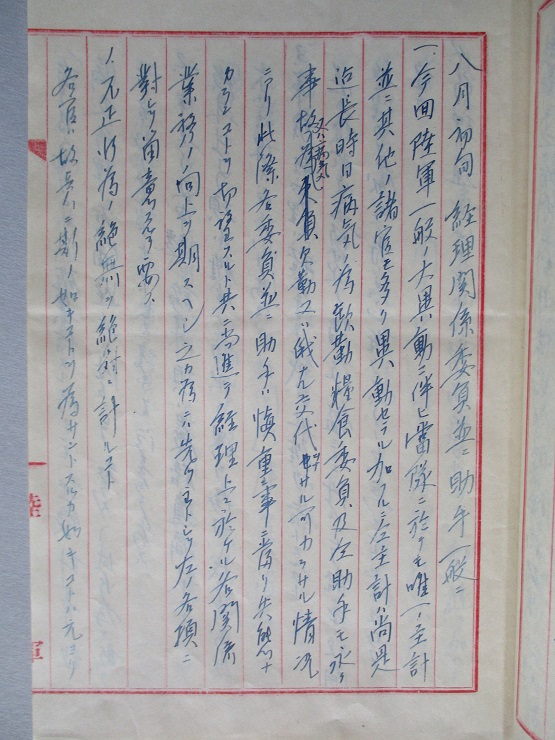 八月初旬 経理関係委員並ニ助手一般ニ
一、今回陸軍一般ノ大異動ニ伴ヒ當隊ニ於テモ唯一ノ主計
並ニ其他ノ諸官モ多ク異動セラル加フルニ主計ハ尚是
迄長時日病気ノ為欠勤糧食委員及仝助手モ永ク
事故又ハ病気
欠勤又ハ交代サル可カラサル情況
ニアリ此際各委員並ニ助手ハ慎重事ニ當リ失態ナ
カランコトヲ切望スルト共ニ尚進テ経理上ニ於ケル各関係
業務ノ向上ヲ期スヘシ之カ為ニハ先ツ主トシテ左ノ各項ニ
對シ留意スルヲ要ス
1、不正行為ノ絶無ヲ絶対ニ計ルコト
各官ハ故意ニ斯ノ如キコトヲ為サントスルカ如キコトハ元ヨリ
陸
軍